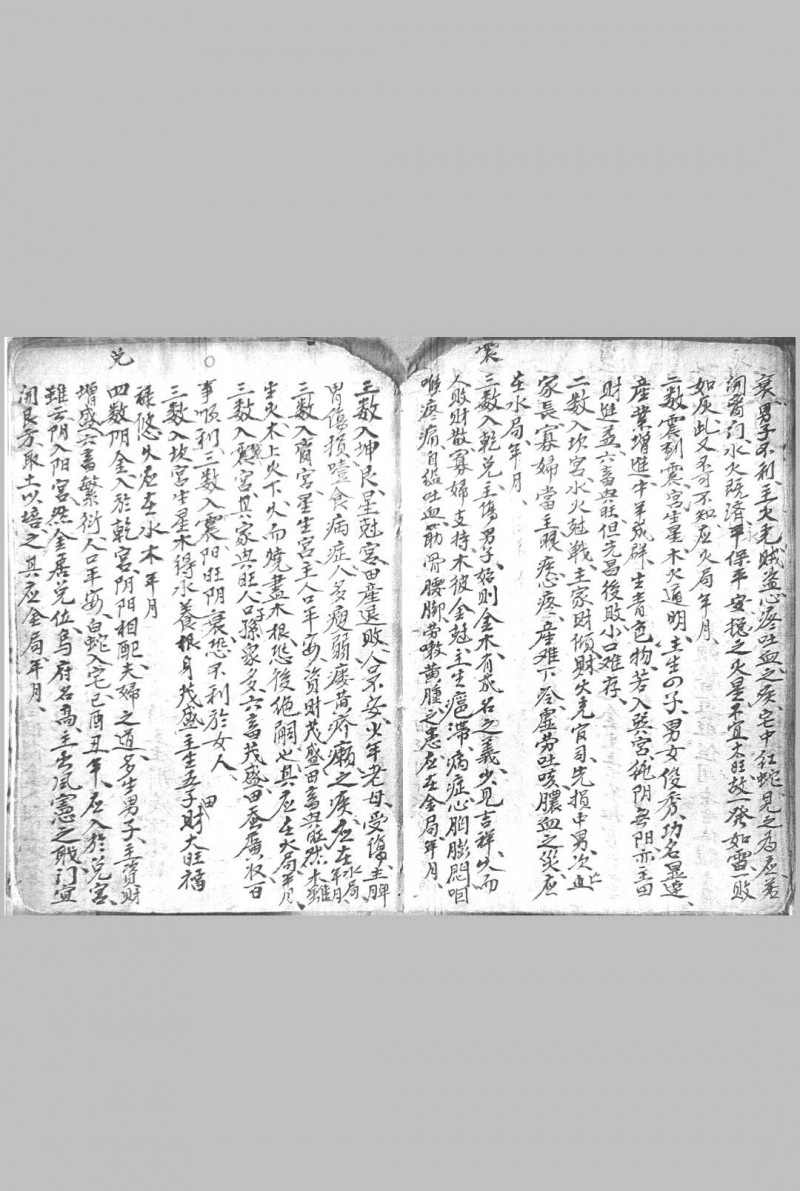 衰男子不利主火毛賊盗心疼吐血之疾宅中红蛇見之為应若
闭寳门水火既済平保平安穏之火星不宜大旺故一発如雷一敗
如灰此又不可不知应火局年月
二数震到震宮生星木火通明主生四子男女俊秀功名显達
産業增進牛羊成群生青色物若入巽宮純阴無阳亦主田
財進益六畜興旺但先昌後敗小口难存
二数入坎宮水火尅戰主家財傾財火克官司先損中男次
家長寡婦當主眼疾心疼産难下冷虚劳吐咳膿血之災应
在水局年月
震
三数入乾兑主傷男子始則金木有成名之義少見吉祥久而
人敗財散寡婦支持木彼金尅主生瘟滞病症心胸膨悶咽
喉疼痛自縊吐血筋骨腰脚劳嗽黄腫之患应在金局年月
三数入坤艮星尅宮田産退敗人口不安少年老母受傷主脾
胃傷損噎食病症人多瘦弱痿黄疥癩之疾应在水局年月
三数入离宮星生宮主人口平安資財茂盛田畜興旺然木雖
生火木上火下久而燒盡木根恐後绝嗣也其应在火局年月
三数入震宮其家興旺人口孫家多六畜茂盛田蚕廣收百
事順利三数入震阳旺阴衰恐不利於女人
三数入坎宮生星木得水養根身茂盛主生五子財大旺福
田
禄悠久应在水木年月
兑
四数阴金入於乾宮阴阳相配夫婦之道名生男子主得財
增盛六畜繁衍人口平安白蛇入宅巳酉丑年应入於兑宮
雖云阴入阳宮然金居兑位烏府名高主出风憲之职门宜
闭艮方取土以培之其应金局年月